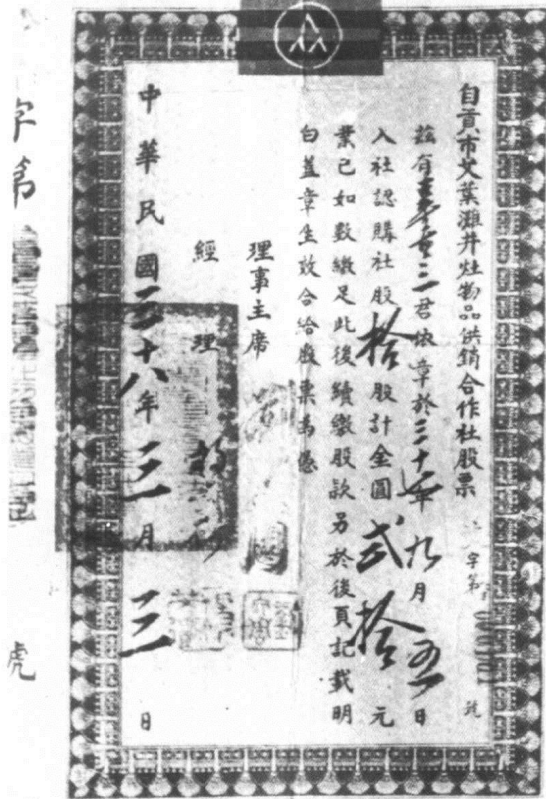 自貢市艾葉灘井灶物品供銷合作社股票
字第 號
茲有 三君依章於三十七年九月五日
入社認購社股拾股計金圓弍拾元
業已如數繳足此後續繳股款另於後頁記載明
白蓋章生效合給股票為憑
理事主席
經理
中華民國三十八年三月三日
字第
號